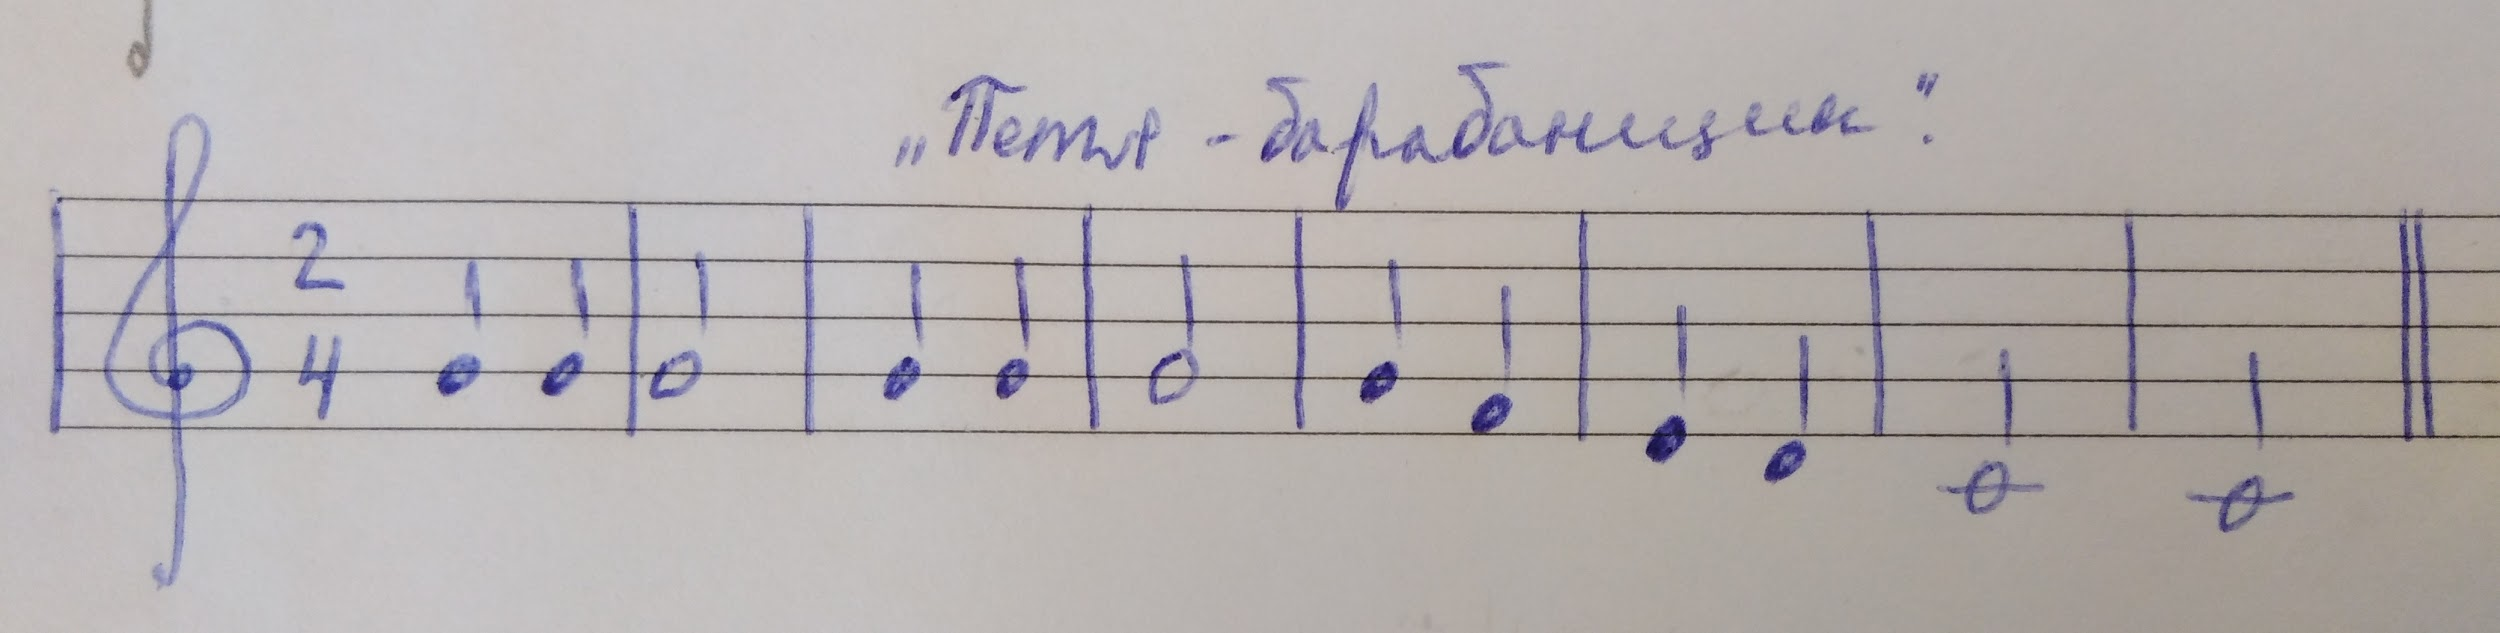 „Петя - барабанщик".
2
4